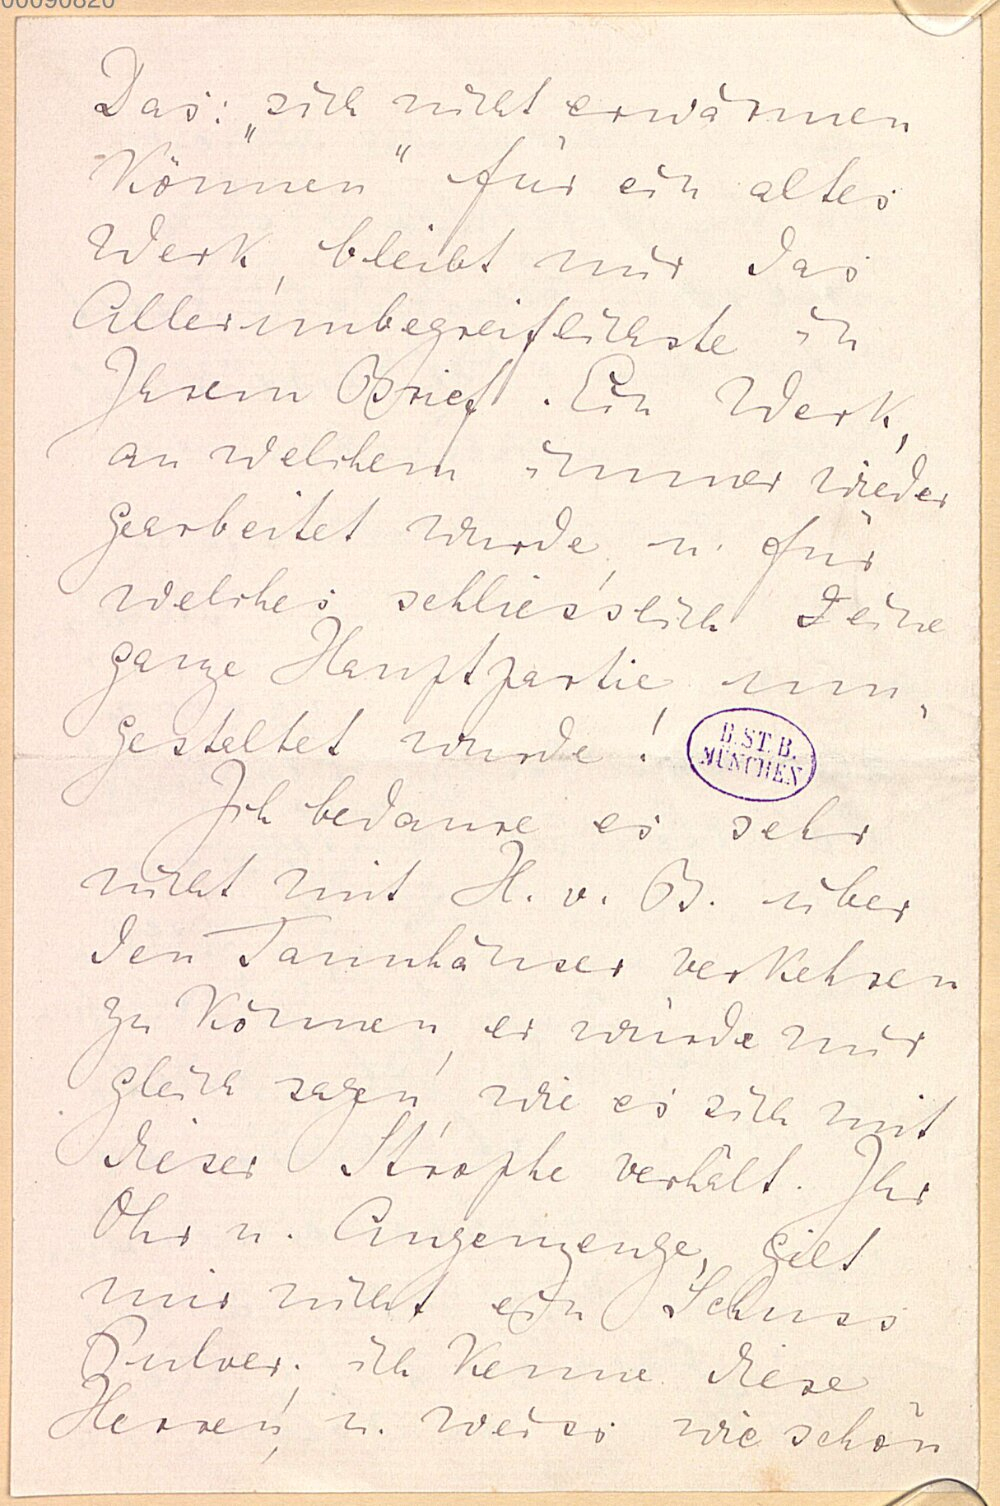 00090820
Das: „sich nicht erwärmen
Können“ für ein altes
Werk, bleibt mir das
Allerunbegreiflichste in
Ihrem Brief. Ein Werk,
an welchem immer wieder
gearbeitet wurde, u. für
welches schliesslich eine
ganze Hauptpartie um-
gestaltet wurde!
B. ST. B.
MÜNCHEN
Ich bedaure es sehr
nicht mit H. v. B. über
den Tannhäuser verkehren
zu Können, er würde mir
gleich sagen, wie es sich mit
dieser Strophe verhält. Ihr
Ohr u. Augenzeuge, gilt
mir nicht ein Schuss
Pulver; ich Kenne diese
Herren, u. weiss wie schön